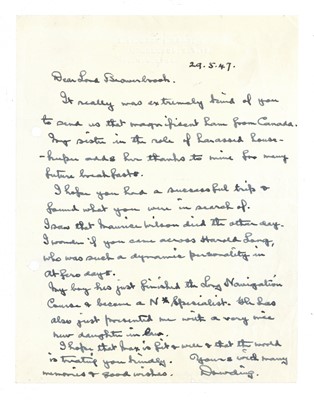 29.5.47.
Dear Lord Beaverbrook.
It really was extremely kind of you
to send us that magnificent ham from Canada.
My sister in the role of harassed house-
-keeper adds her thanks to mine for many
future breakfasts.
I hope you had a successful trip &
found what you were in search of.
I saw that Maurice Wilson died the other day.
I wonder if you came across Harold Long,
who was such a dynamic personality in
days.
My boy has just finished the Long Navigation
Course & become a Specialist. He has
also just presented me with a very nice
new daughter in law.
I hope that Max is fit & well & that the world
is treating you kindly. Yours with many
memories & good wishes. Dowding.